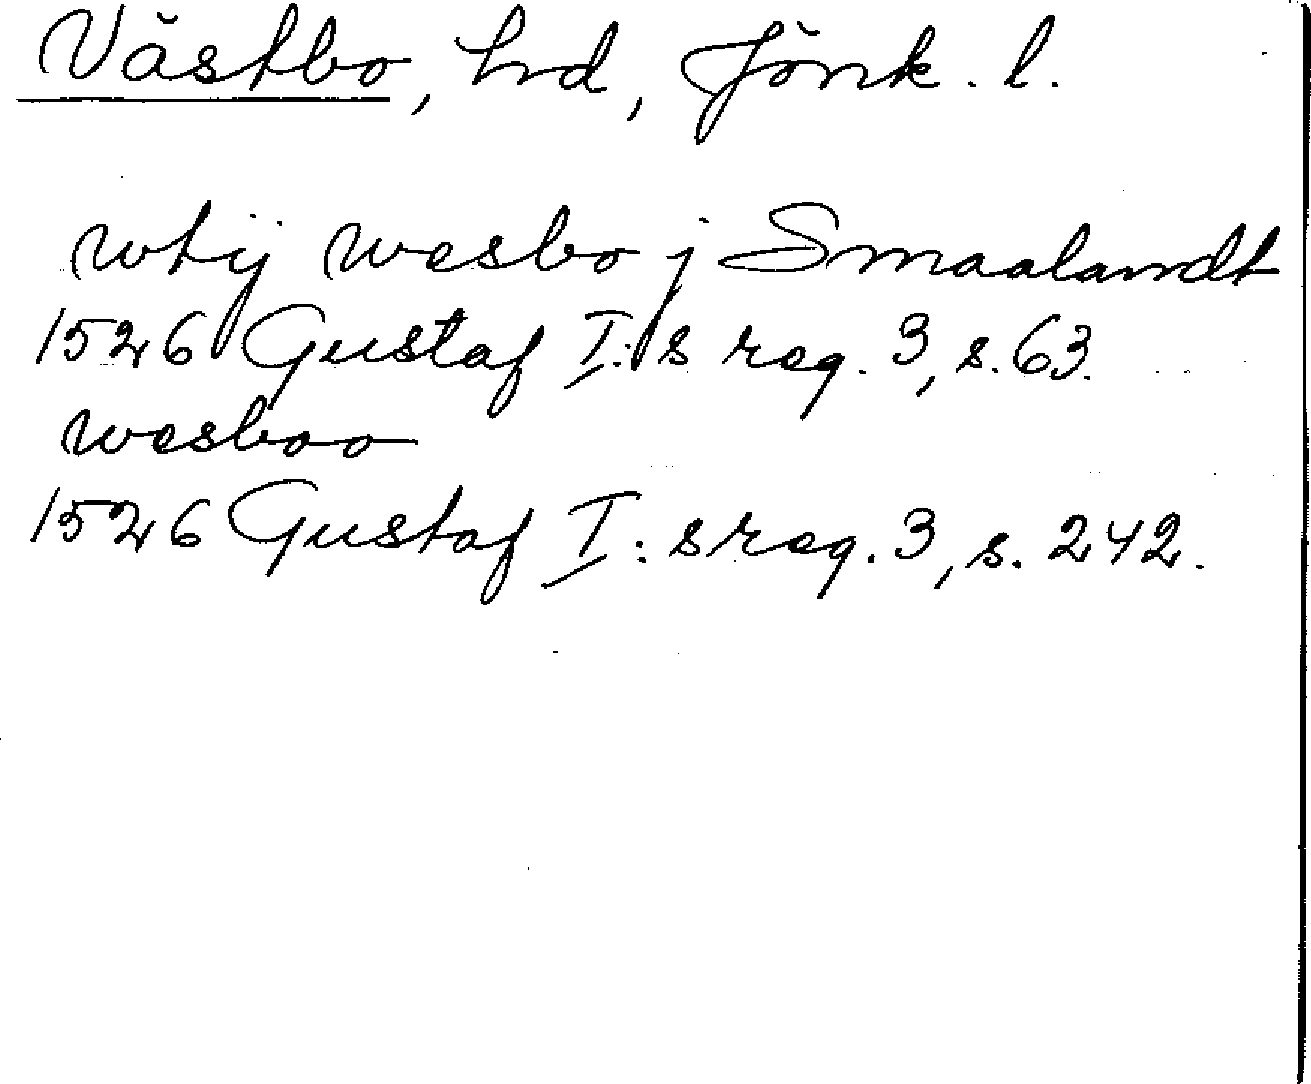 Västbo, hd, Jönk. l.
wtij wesbo j Smaalandt
1526 Gustaf I:s reg. 3, s. 63.
wesboo
1526 Gustaf I:s reg. 3, s. 242.